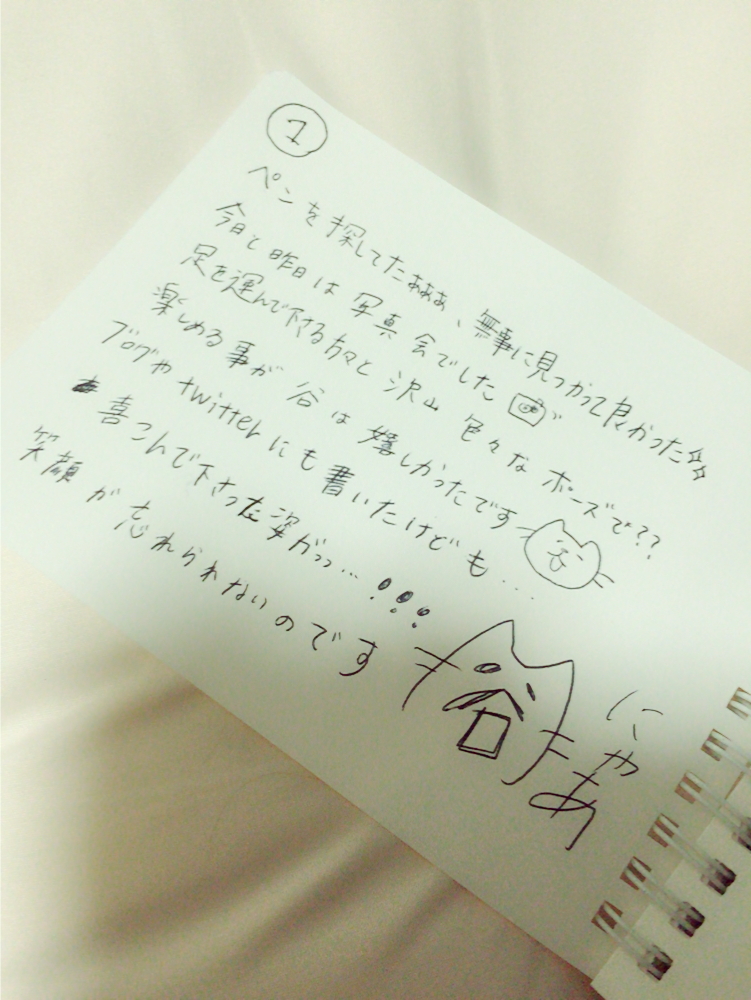 1
ペンを探してたあああ、無事に見つかって良かった
今日と昨日は写真会でした
足を運んで下さる方々と沢山色々なポーズで??
楽しめる事が谷は嬉しかったです
ブログやtwitterにも書いたけども...
喜こんで下さった姿がっっ...!!!
笑顔が忘れられないのです
谷
にゃあ